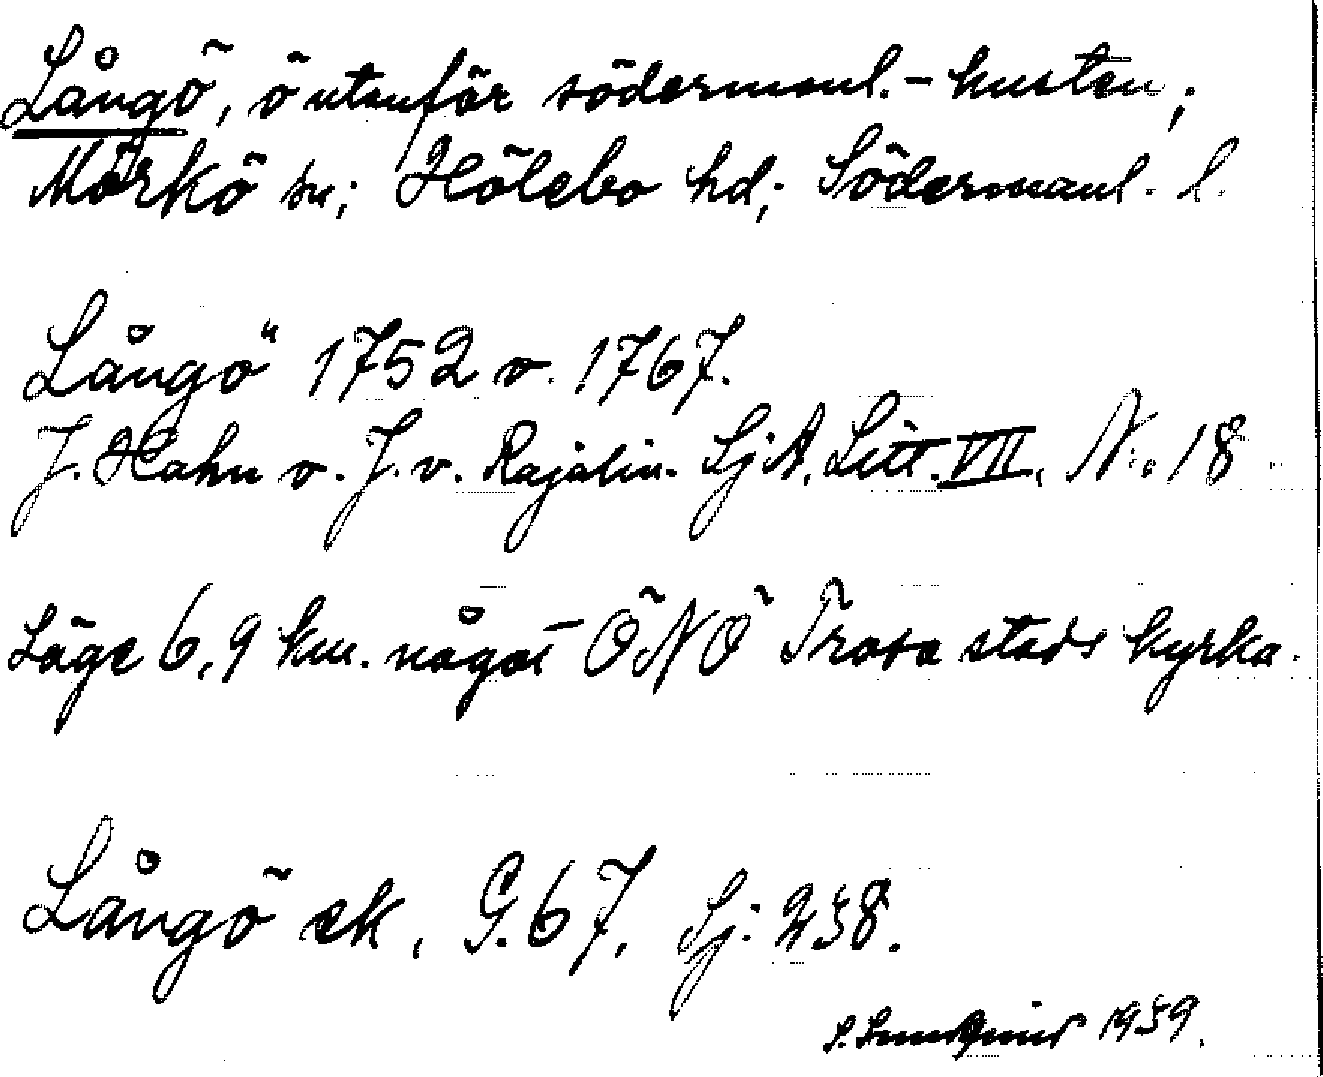 Långö, ö utanför södermanl.-kusten;
Mörkö sn; Hölebo hd; Södermanl. l.
Långö" 1752 o. 1767.
J. Hahn o. J. v. Rajalin. SjA. Litt. VII. N:o 18
Läge 6,9 km. något ÖNÖ Trosa stads kyrka.
Långö ek, G. 67, Sj: 238.
1939.